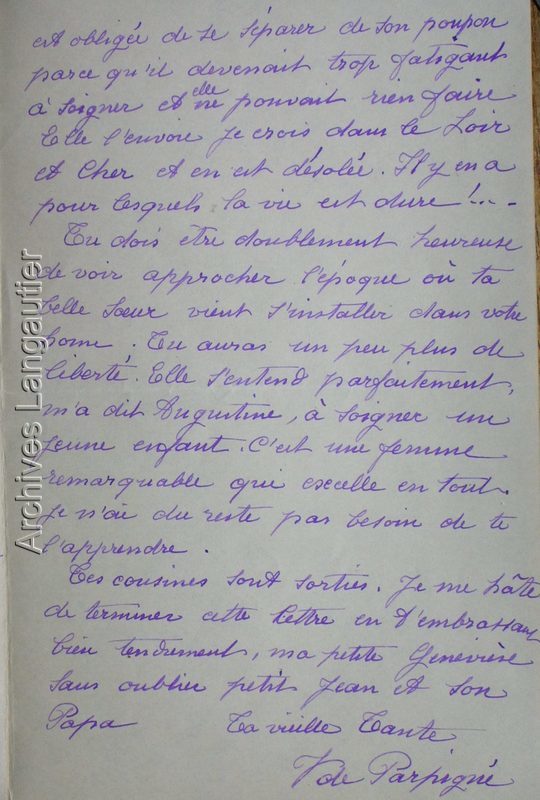 est obligée de se séparer de son poupon
parce qu'il devenait trop fatigant
à soigner et elle ne pouvait rien faire
Elle l'envoie je crois dans le Loir
et Cher et en est désolée. Il y en a
pour lesquels la vie est dure !...-
Tu dois être doublement heureuse
de voir approcher l'époque où ta
belle sœur vient s'installer dans votre
home. Tu auras un peu plus de
liberté. Elle s'entend parfaitement,
m'a dit Augustine, à soigner un
jeune enfant. C'est une femme
remarquable qui excelle en tout.
Je n'ai du reste pas besoin de te
l'apprendre.
Tes cousines sont sorties. Je me hâte
de terminer cette lettre en t'embrassant
bien tendrement, ma petite Geneviève
sans oublier petit Jean et son
Papa Ta vieille Tante
V de Parpigné
Archives Langautier